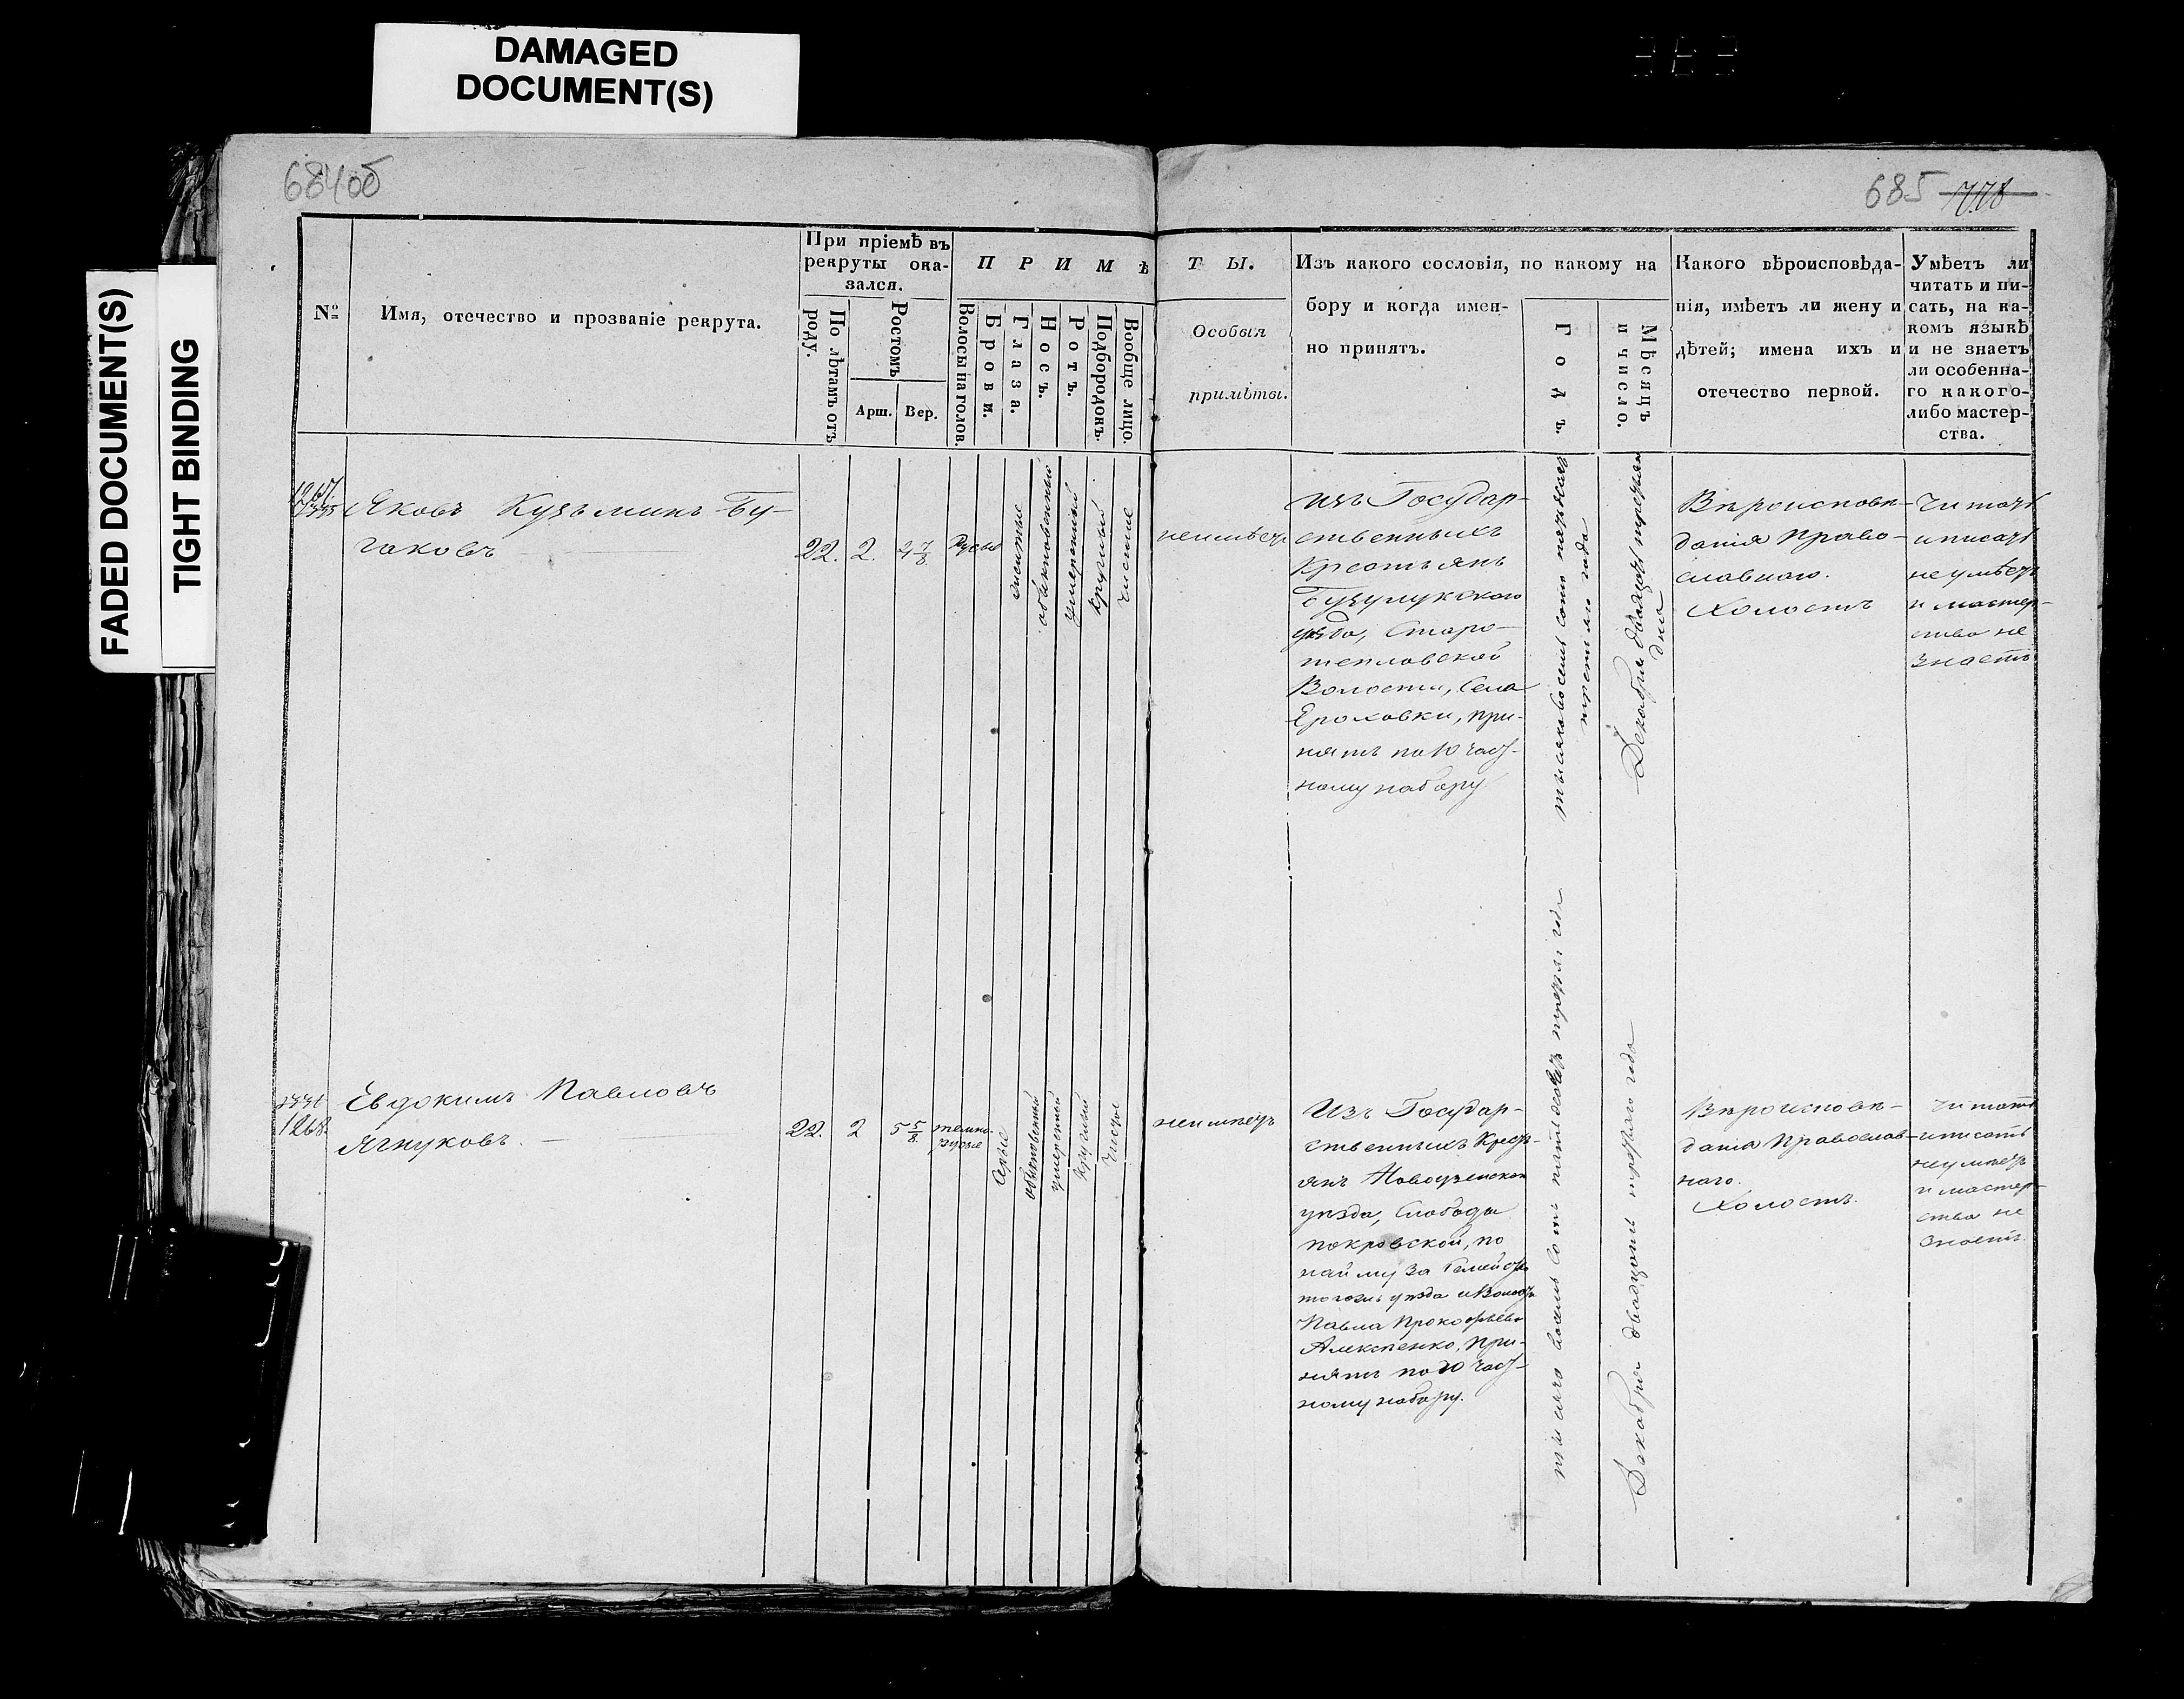 DAMAGED
DOCUMENT(S)
FADED DOCUMENT(S)
TIGHT BINDING
684об
685
№
Имя, отечество и прозваніе рекрута.
При пріемѣ въ
рекруты ока-
зался.
По лѣтамъ отъ
роду.
Ростомъ
Арш.
Вер.
П Р И М Ѣ
Волосы на голов.
Брови.
Глаза.
Носъ.
Ротъ.
Подбородокъ.
Вообще лицо.
Т Ы.
Особыя
примѣты.
Изъ какого сословія, по какому на
бору и когда имен-
но принятъ.
Годъ.
Мѣсяцъ
и число.
Какого вѣроисповѣда-
нія, имѣетъ ли жену и
дѣтей; имена ихъ и
отечество первой.
Умѣетъ ли
читать и пи-
сать, на ка-
комъ языкѣ
и не знаетъ
ли особенна-
го какого-
либо мастер-
ства.
1267.
Яковъ Кузьминъ Бу-
гаковъ
22.
2.
Русые
обыкновенный
умеренный
круглый
чистое
неимѣетъ
Изъ Государ-
ственныхъ
Крестьянъ
Бузулукского
уезда, Старо-
тепловской
Волости, Села
Ероховки, при-
нятъ по 10 част-
ному набору
Декабря двадцать третьяго
дня
Вѣроисповѣ-
данія Право-
славного.
Холостъ
Читать
и писать
не умѣетъ
и мастер-
ства не
знаетъ
1268.
Евдокимъ Павловъ
Ягнуковъ.
22.
2
5 5/8
темно-
русые
Серые
обыкновенной
умеренной
круглый
Чистое
неимѣетъ
Изъ Государ-
ственныхъ Крест-
янъ Новоузенского
уѣзда, Слободы
Покровской, по
найму за Семейство
тогожъ уѣзда и Волости
Павла Прокофьева
Алексѣенко, при-
нятъ по 10 част-
ному набору.
тысяча восемь сотъ пятьдесятъ третьяго года
Декабря двадцать третьяго года
Вѣроисповѣ-
данія Православ-
наго.
Холостъ.
Читать
и писать
неумѣетъ
и мастер-
ства не
знаетъ.